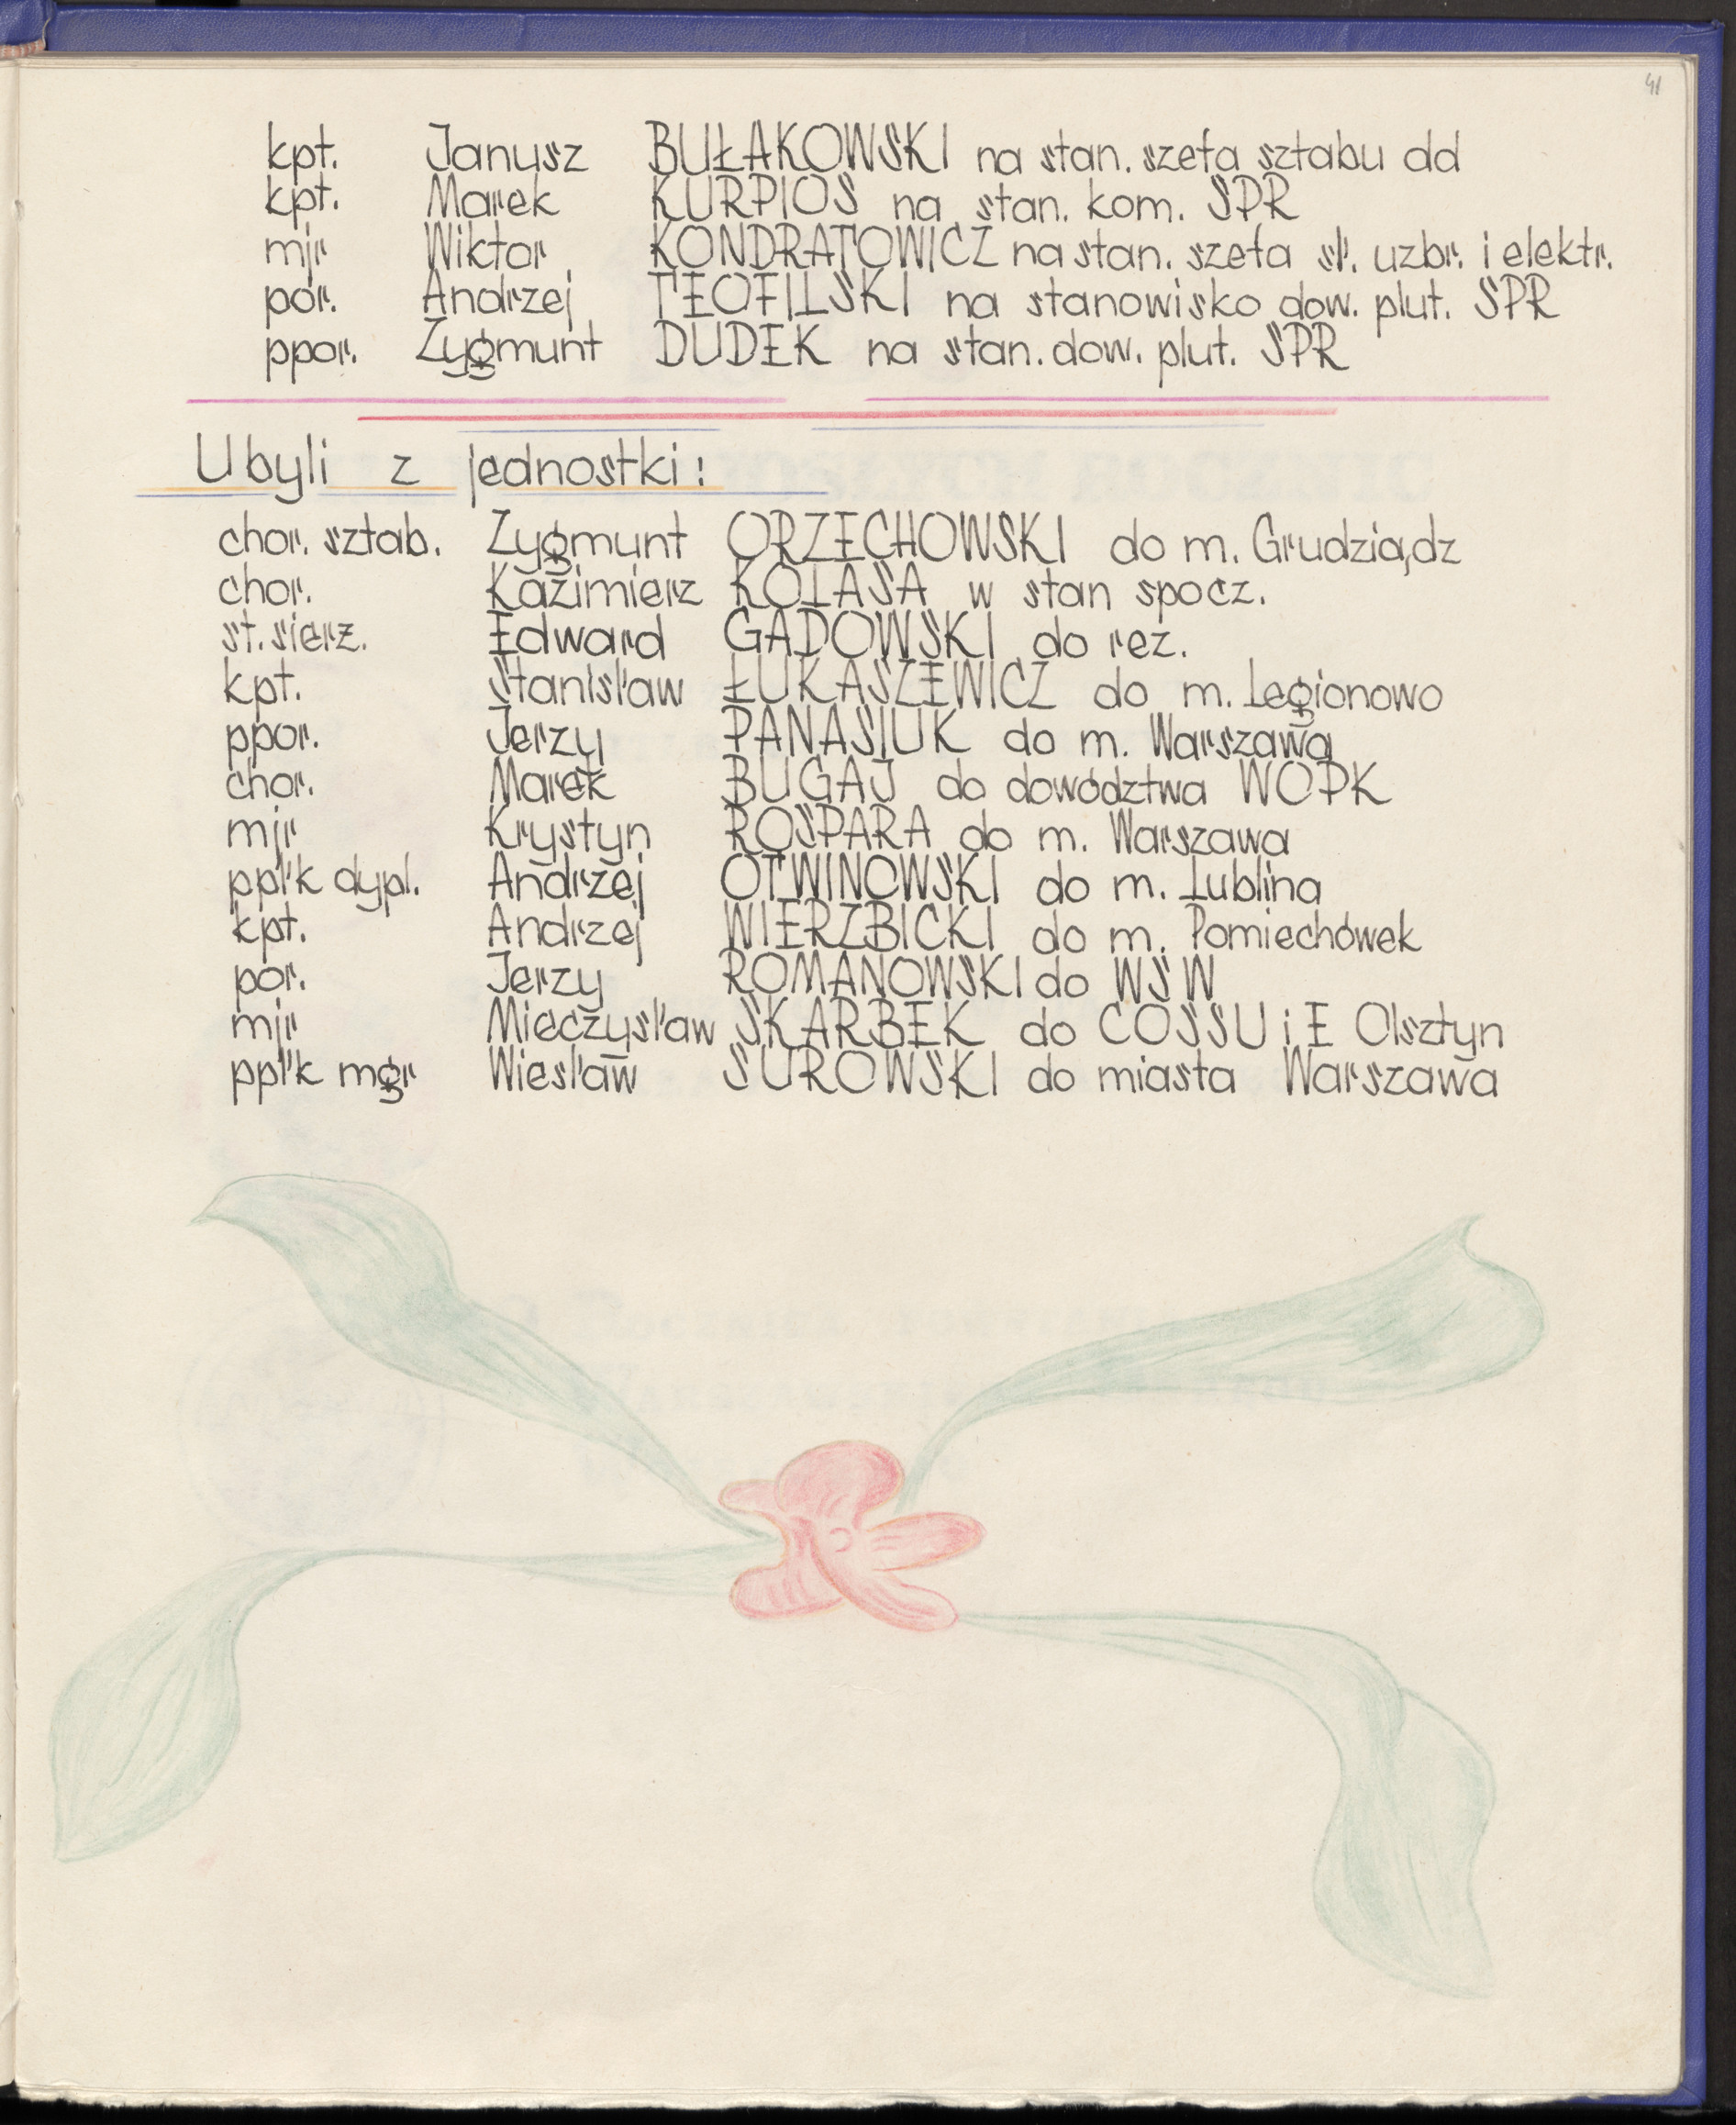 41
kpt. Janusz BUŁAKOWSKI na stan. szefa sztabu dd
kpt. Marek KURPIOS na stan. kom. SPR
mjr Wiktor KONDRATOWICZ na stan. szefa sł. uzbr. i elektr.
por. Andrzej TEOFILSKI na stanowisko dow. plut. SPR
ppor. Zygmunt DUDEK na stan. dow. plut. SPR
Ubyli z jednostki:
chor. sztab. Zygmunt ORZECHOWSKI do m. Grudziądz
chor. Kazimierz KOLASA w stan spocz.
st. sierz. Edward GADOWSKI do rez.
kpt. Stanisław ŁUKASZEWICZ do m. Legionowo
ppor. Jerzy PANASIUK do m. Warszawa
chor. Marek BUGAJ do dowództwa WOPK
mjr Krystyn ROSPARA do m. Warszawa
ppłk dypl. Andrzej OTWINOWSKI do m. Lublina
kpt. Andrzej WIERZBICKI do m. Pomiechówek
por. Jerzy ROMANOWSKI do WSW
mjr Mieczysław SKARBEK do COSSU i E Olsztyn
ppłk mgr Wiesław SUROWSKI do miasta Warszawa